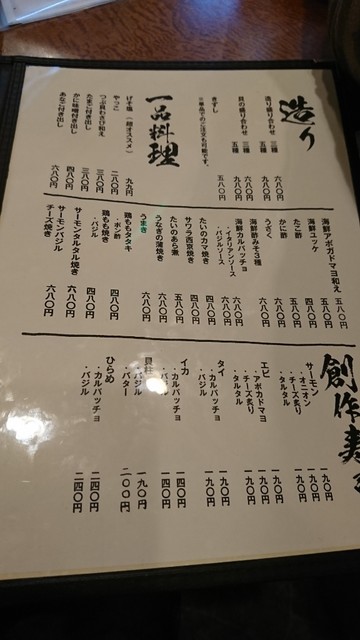 造り
造り盛り合わせ 三種 六八〇円
五種 九八〇円
貝の盛り合わせ 三種 九八〇円
五種
きずし 五八〇円
※単品でのご注文も可能です。
一品料理
げそ塩 (超オススメ) 九九円
やっこ 二八〇円
つぶ貝わさび和え 三八〇円
たまご付き出し 三八〇円
かに味噌付き出し 四八〇円
あなご付き出し 六八〇円
海鮮アボガドマヨ和え 五八〇円
海鮮ユッケ 五八〇円
たこ酢 四八〇円
かに酢 五八〇円
うざく 六八〇円
海鮮酢みそ3種
海鮮カルパッチョ 六八〇円
・イタリアンソース 六八〇円
・バジルソース
たいのカマ焼き 四八〇円
サワラ西京焼き 四八〇円
たいのあら煮 五八〇円
うなぎの蒲焼き
うまき 六八〇円
鶏ももタタキ
・ポン酢 四八〇円
鶏もも焼き
・バジル 四八〇円
サーモンタルタル焼き 六八〇円
サーモンバジル
チーズ焼き 六八〇円
創作寿
サーモン
・オニオン 一九〇円
・チーズ炙り 一九〇円
・タルタル 一九〇円
エビ
・アボカドマヨ 一九〇円
・チーズ炙り 一九〇円
・タルタル 一九〇円
タイ
・カルパッチョ 一九〇円
・バジル 一九〇円
イカ
・カルパッチョ 一四〇円
・バジル 一四〇円
貝柱
・バジル 一九〇円
・バター 二〇〇円
ひらめ
・カルパッチョ 二四〇円
・バジル 二四〇円